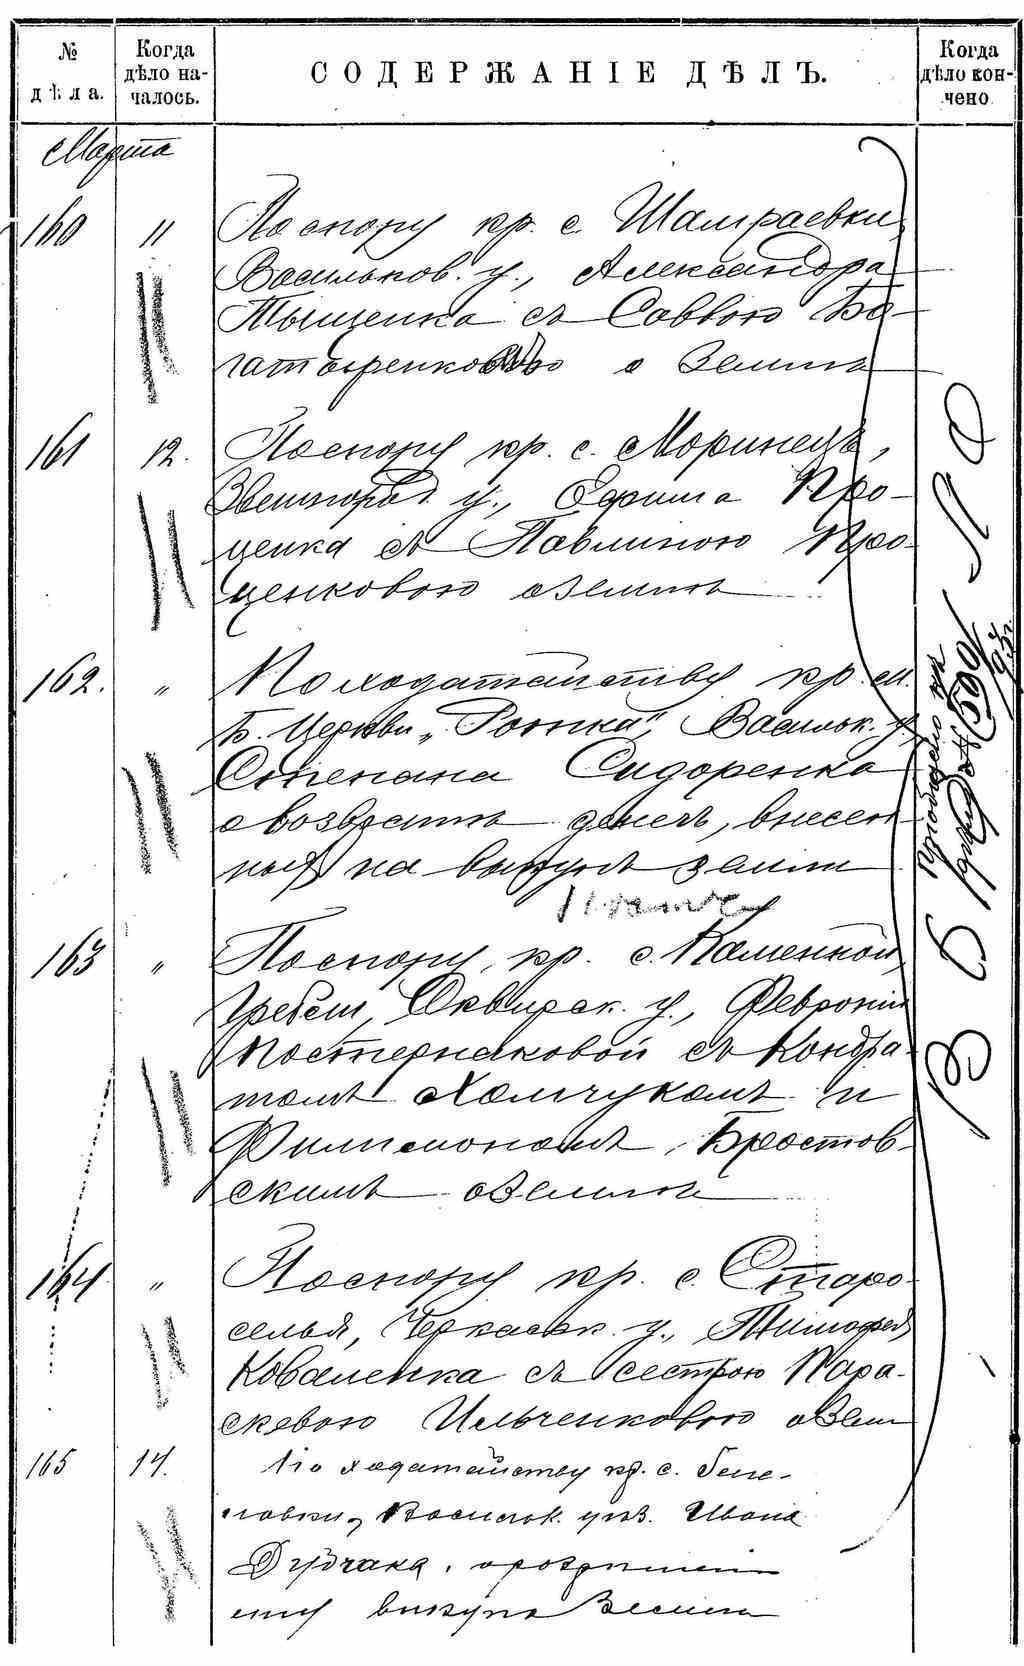 № дѣла.
Когда дѣло началось.
СОДЕРЖАНІЕ ДѢЛЪ.
Когда дѣло кончено
Марта
160 11 По спору кр. с. Шамраевки,
Васильков. у., Александра
Тыщенка съ Саввою Бо-
гатыренковою о земли
161 12. По спору кр. с. Моринецъ,
Звенигород. у., Ефима Про-
ценка съ Павлиною Про-
ценковою о земли
162. " По ходатайству кр. м.
Б. Церкви "Ротка", Васильк. у.,
Степана Сидоренка
о возвратѣ денегъ, внесен-
ныхъ на выкупъ земли
163 " По спору, кр. с. Каменной
Гребли, Сквирск. у., Февроніи
Постернаковой съ Кондра-
томъ Хомчукомъ и
Филимономъ Брастов-
скимъ о земли
164 " По спору кр. с. Старо-
селья, Черкасск. у., Тимофея
Коваленка съ сестрою Пара-
скевою Ильченковою о земл
165 14. По ходатайству кр. с.
Васильк. уѣз. Ивана
о разрѣшеніи
ему выкупа земли
500